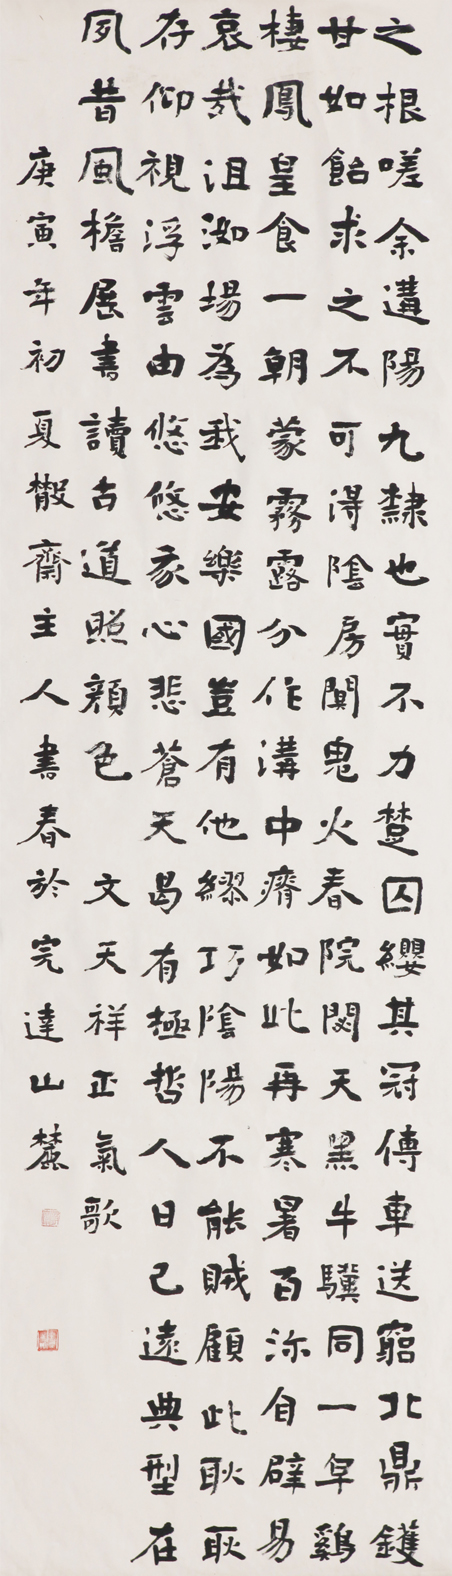 之根嗟余遘陽九隸也實不力楚囚纓其冠傳車送窮北鼎鑊
甘如飴求之不可得陰房闃鬼火春院閟天黑牛驥同一皁鷄
棲鳳皇食一朝蒙霧露分作溝中瘠如此再寒暑百沴自辟易
哀哉沮洳場為我安樂國豈有他繆巧陰陽不能賊顧此耿耿
存仰視浮雲由悠悠我心悲蒼天曷有極哲人日已遠典型在
夙昔風檐展書讀古道照顏色 文天祥正氣歌
庚寅年初夏齋主人書春於完達山麓